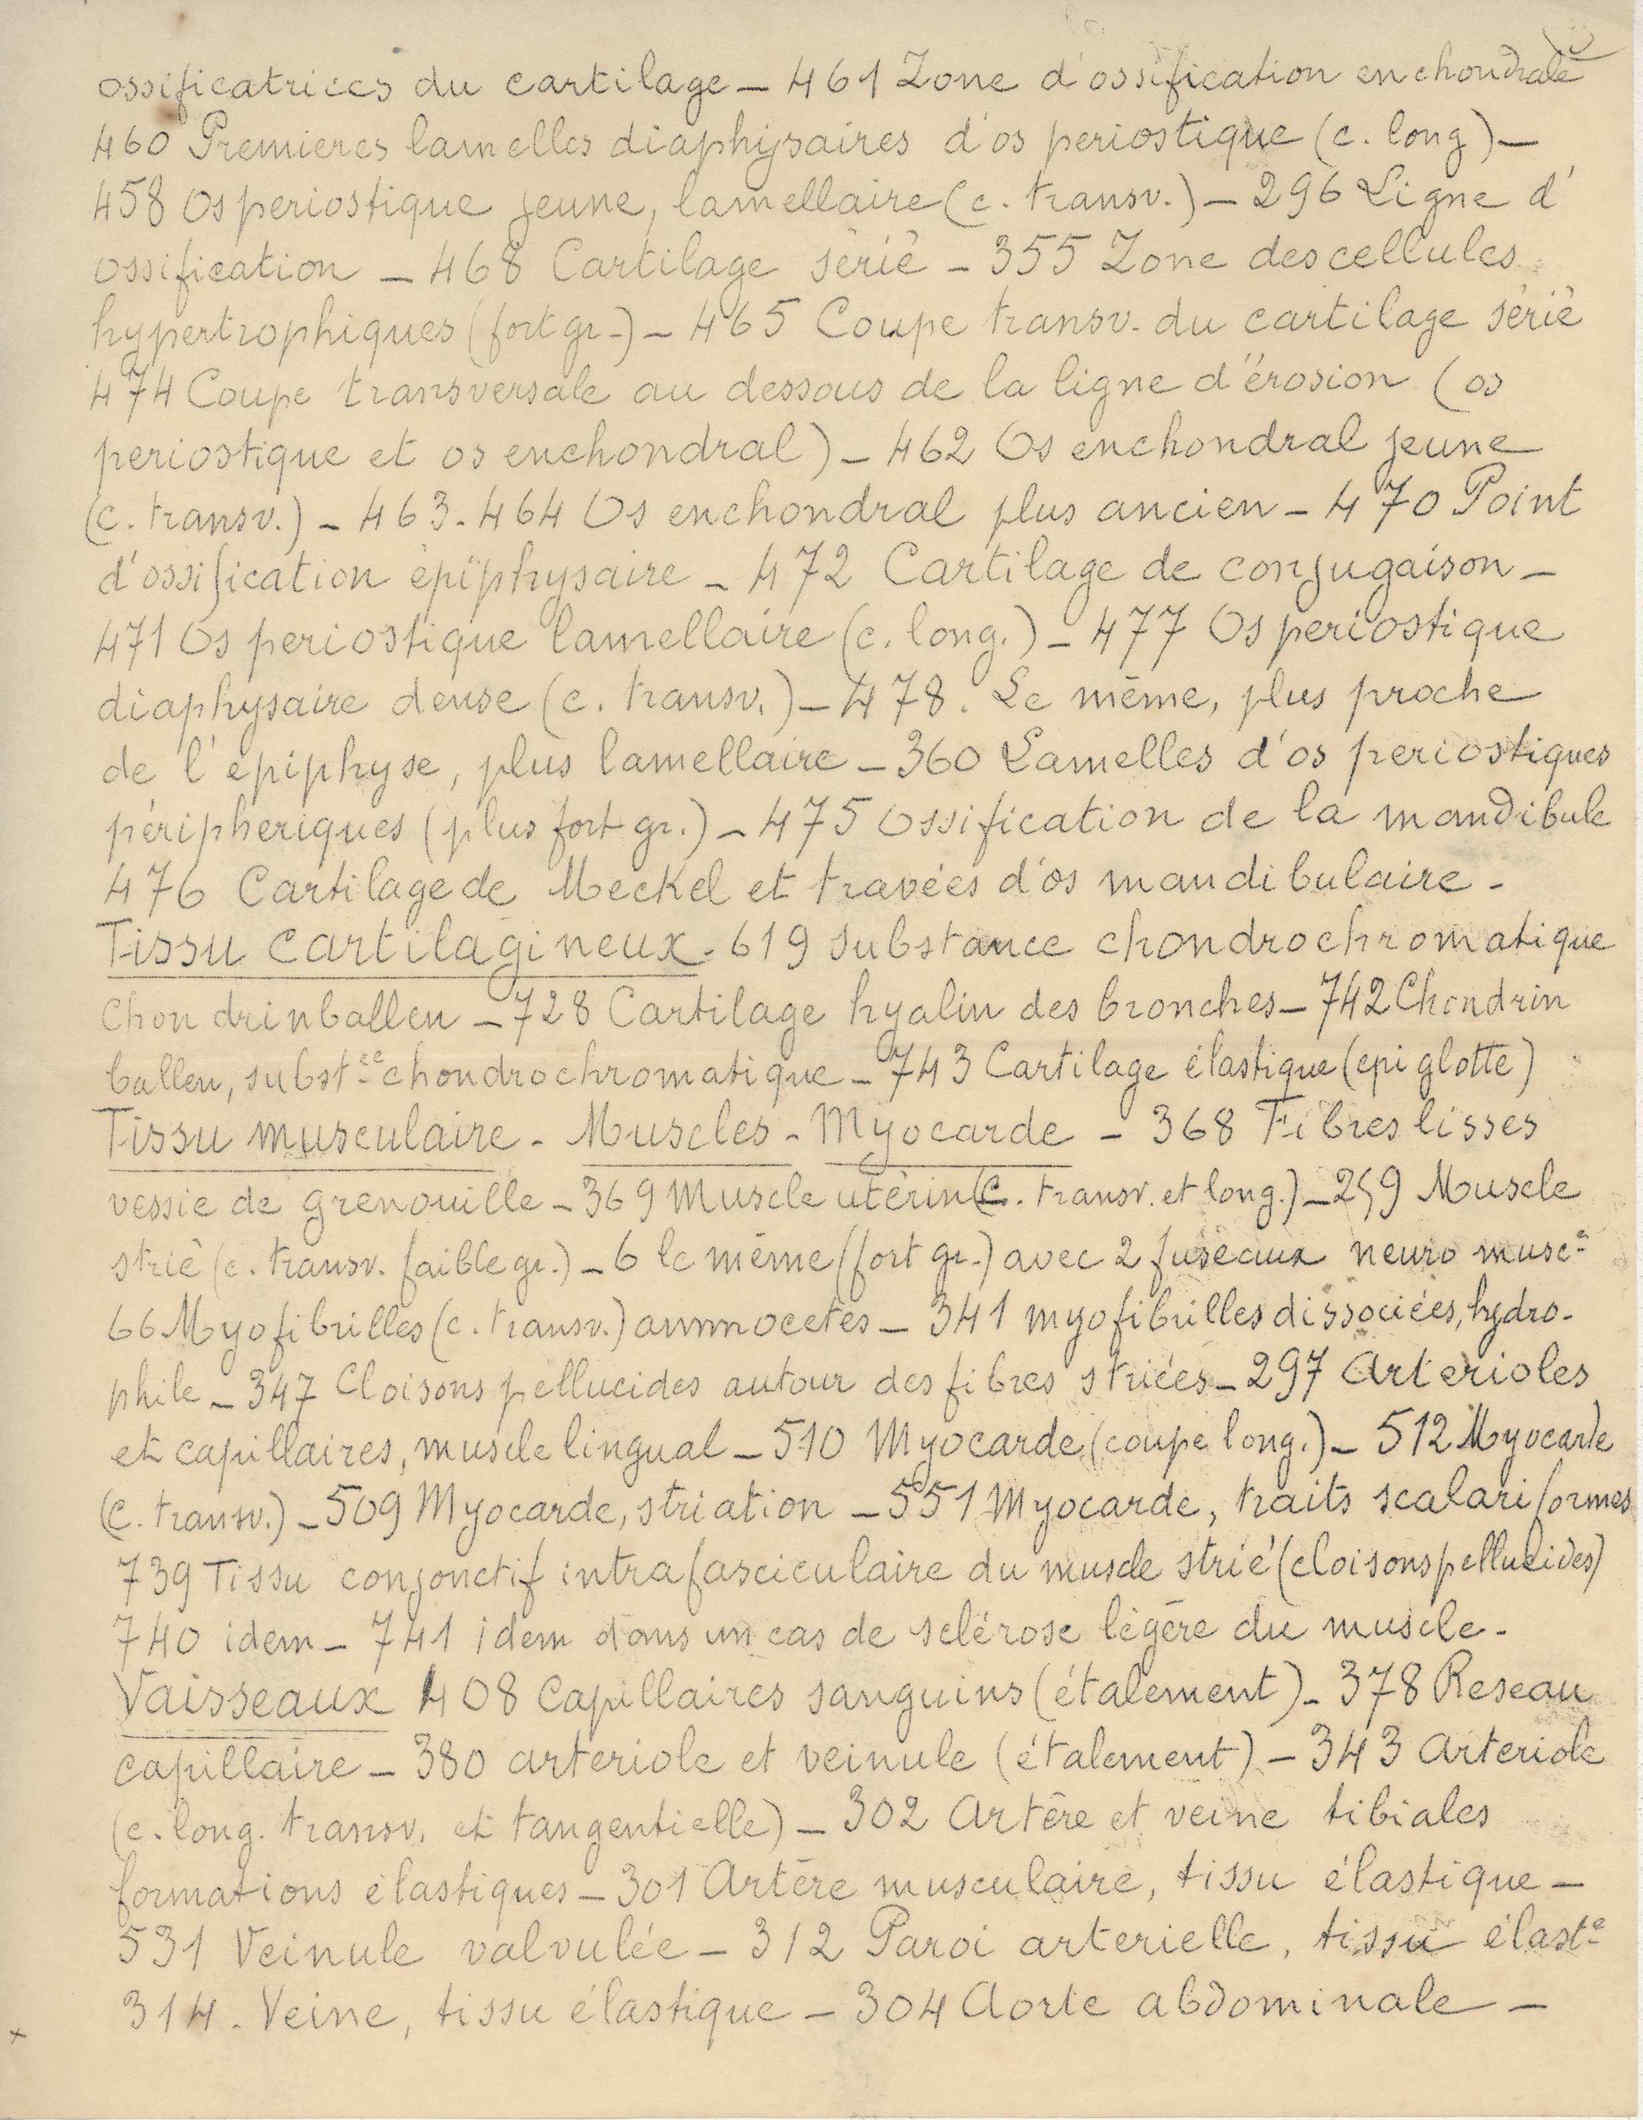 ossificatrices du cartilage _ 461 Zone d'ossification enchondrale
460 Premieres lamelles diaphysaires d'os periostique (c. long) _
458 Os periostique jeune, lamellaire (c. transv.) _ 296 Ligne d'
ossification _ 468 Cartilage sérié _ 355 Zone des cellules
hypertrophiques (fort gr.) _ 465 Coupe transv. du cartilage sérié
474 Coupe transversale au dessous de la ligne d'érosion (os
periostique et os enchondral) _ 462 Os enchondral jeune
(c. transv.) _ 463. 464 Os enchondral plus ancien _ 470 Point
d'ossification épiphysaire _ 472 Cartilage de conjugaison _
471 Os periostique lamellaire (c. long.) _ 477 Os periostique
diaphysaire dense (c. transv.) _ 478. Le même, plus proche
de l'épiphyse, plus lamellaire _ 360 Lamelles d'os periostiques
péripheriques (plus fort gr.) _ 475 Ossification de la mandibule
476 Cartilage de Meckel et travées d'os mandibulaire.
Tissu cartilagineux. 619 substance chondrochromatique
Chondrinballen _ 728 Cartilage hyalin des bronches _ 742 Chondrin
ballen, subst.ce chondrochromatique _ 743 Cartilage élastique (epiglotte)
Tissu musculaire. Muscles. Myocarde _ 368 Fibres lisses
vessie de grenouille _ 369 Muscle utérin (c. transv. et long.) _ 259 Muscle
strié (c. transv. faible gr.) _ 6 le même (fort gr.) avec 2 fuseaux neuro musc.s
66 Myofibrilles (c. transv.) ammocetes _ 341 myofibrilles dissociées, hydro-
phile _ 347 Cloisons pellucides autour des fibres striées _ 297 Arterioles
et capillaires, muscle lingual _ 510 Myocarde (coupe long.) _ 512 Myocarde
(c. transv.) _ 509 Myocarde, striation _ 551 Myocarde, traits scalariformes
739 Tissu conjonctif intrafasciculaire du muscle strié (cloisons pellucides)
740 idem _ 741 idem dans un cas de sclérose légère du muscle.
Vaisseaux 408 Capillaires sanguins (étalement) _ 378 Reseau
capillaire _ 380 arteriole et veinule (étalement) _ 343 Arteriole
(c. long. transv. et tangentielle) _ 302 Artère et veine tibiales
formations élastiques _ 301 Artère musculaire, tissu élastique _
531 Veinule valvulée _ 312 Paroi arterielle, tissu élast.e
314. Veine, tissu élastique _ 304 Aorte abdominale _